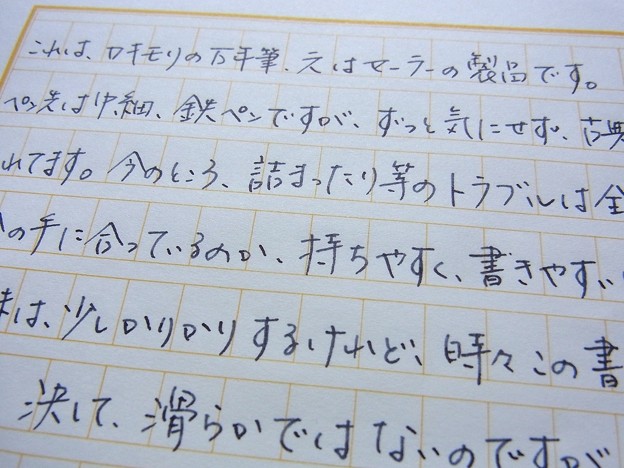 これは、ワキモリの万年筆、元はセーラーの製品です。
ペン先は中細、鉄ペンですが、ずっと気にせず、古典
れてます。今のところ、詰まったり等のトラブルは全
の手に合っているのか、持ちやすく、書きやすい
は、少しかりかりするけれど、時々この書
決して、滑らかではないのですが